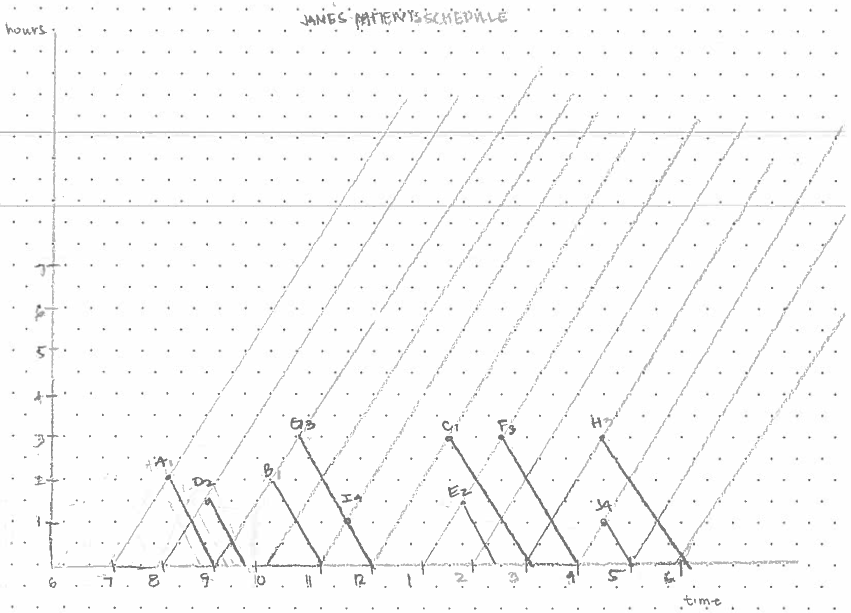 JANES PATIENTS SCHEDULLE
hours
7
6
5
4
3
2
1
A1
D2
B1
G3
I4
C1
F3
E2
H3
J4
6 7 8 9 10 11 12 1 2 3 4 5 6
time